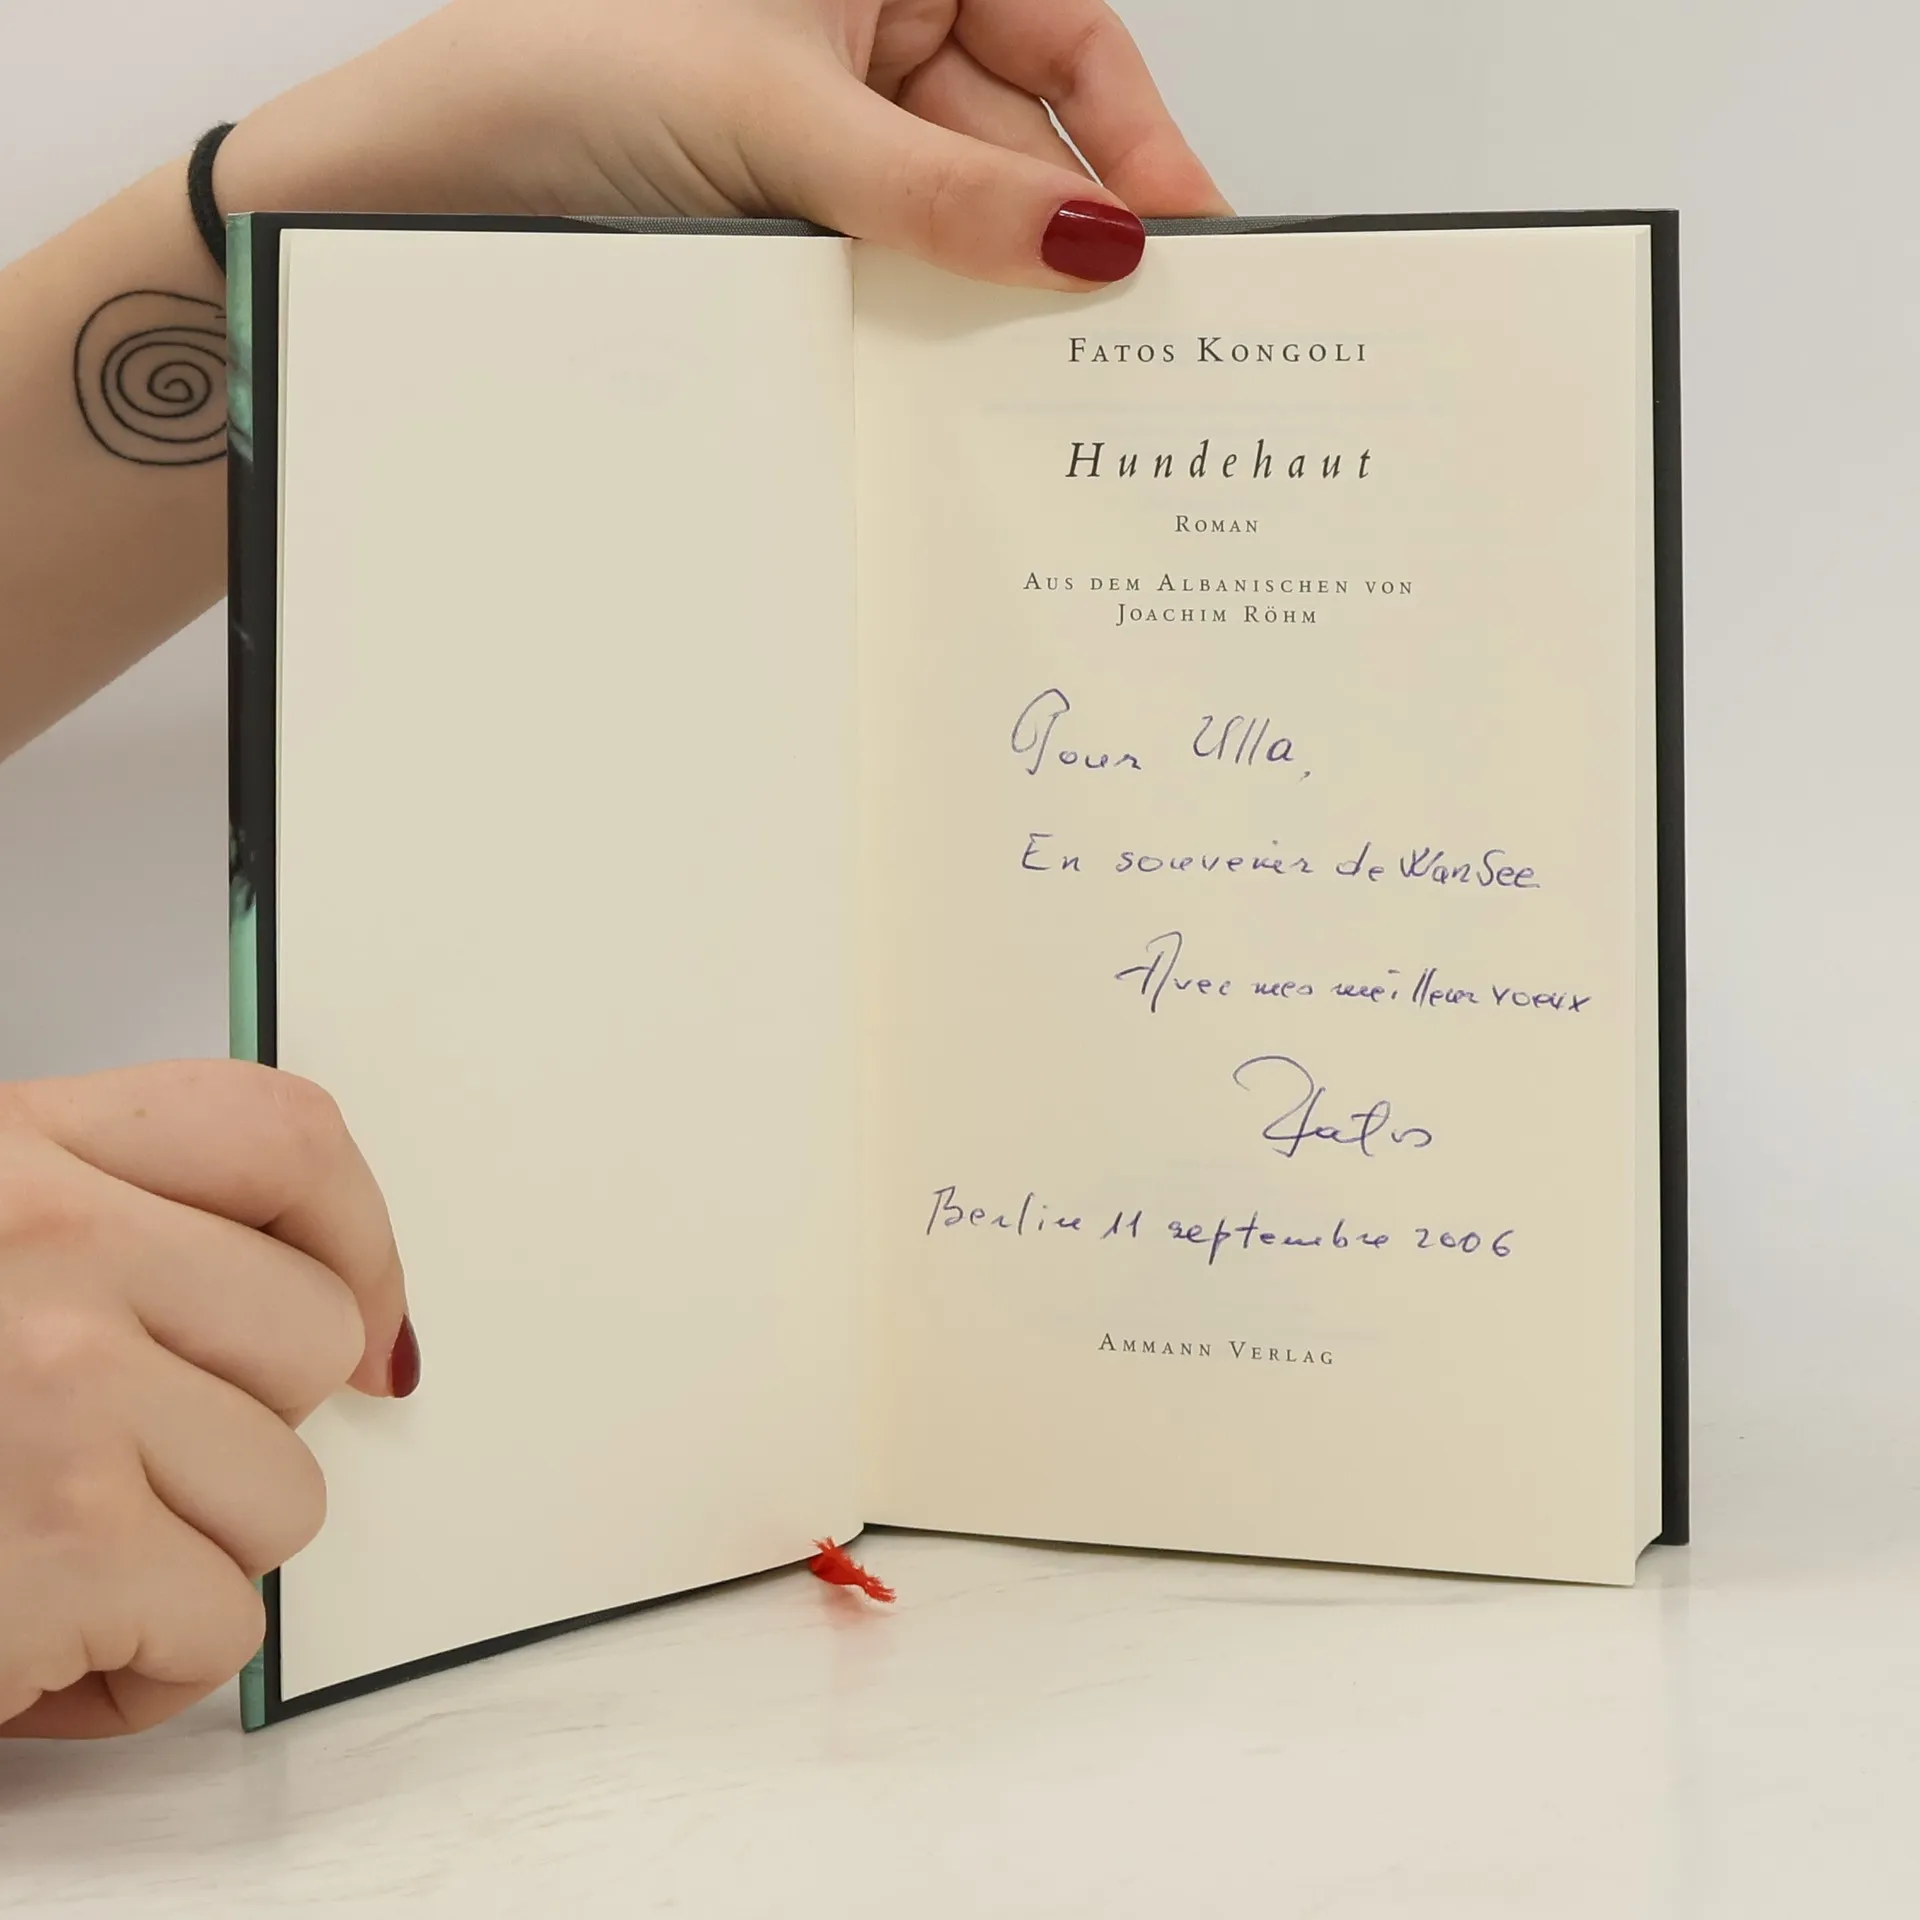 FATOS KONGOLI
Hundehaut
ROMAN
AUS DEM ALBANISCHEN VON
JOACHIM RÖHM
Pour Ulla,
En souvenir de WanSee
Avec mes meilleur voeux
Fatos
Berlin 11 septembre 2006
AMMANN VERLAG